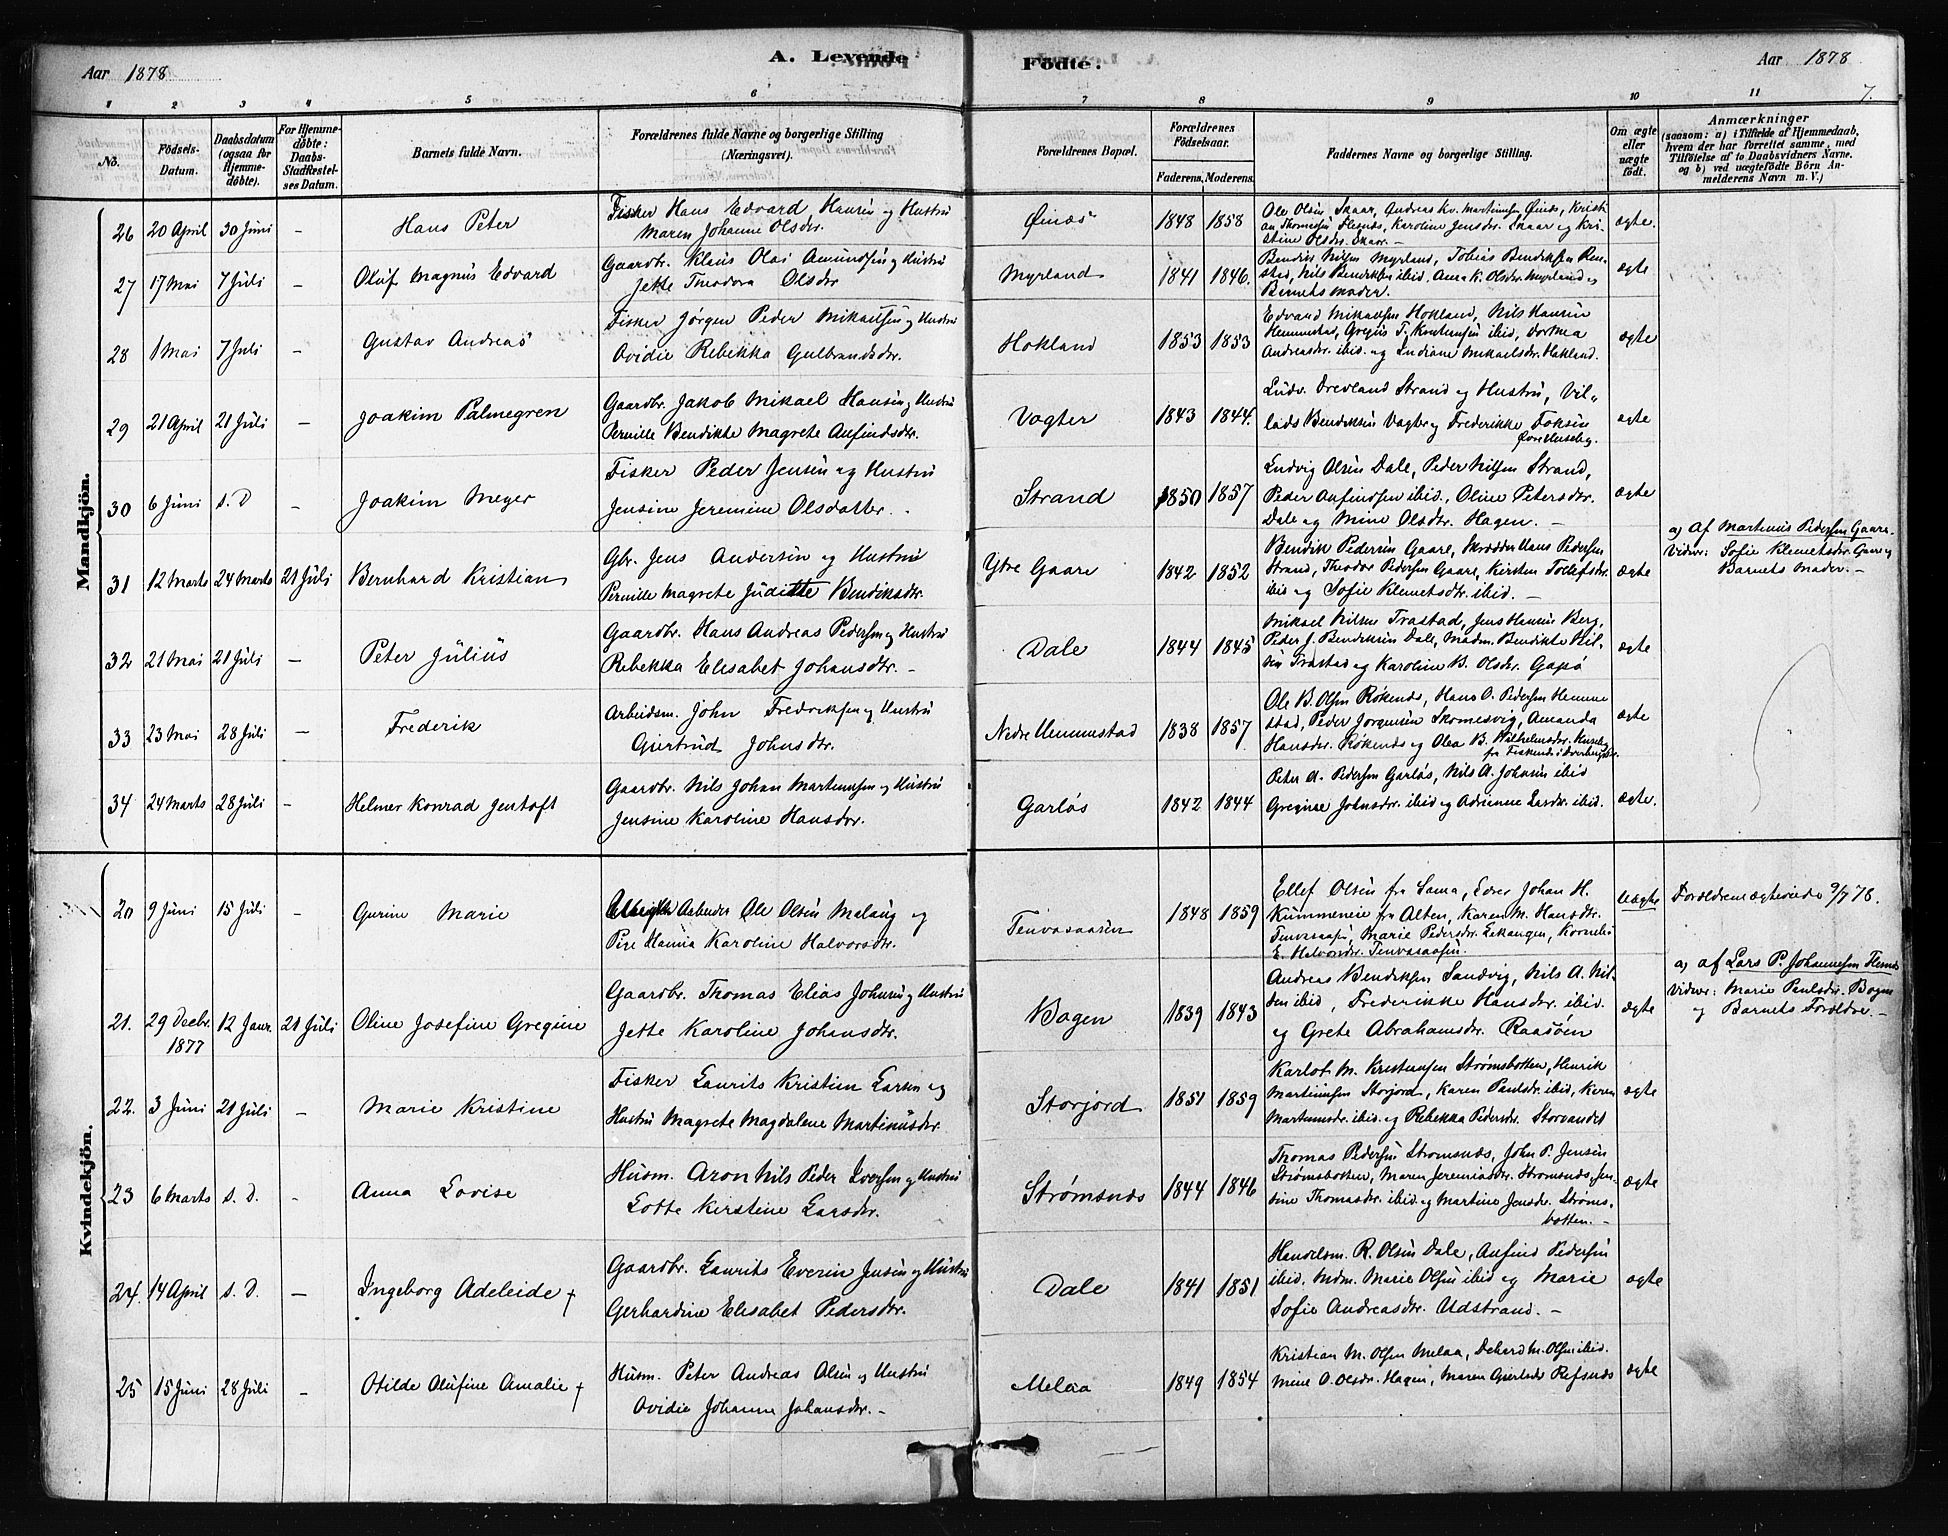 Aar 1878
A. Levende
Fødte.
Aar 1878
7.
1 2 3 4 5 6 7 8 9 10 11
No.
Födsels-
Datum.
Daabsdatum
(ogsaa for
Hjemme-
döbte).
For Hjemme-
döbte:
Daabs-
Stadfæstel-
ses Datum.
Barnets fulde Navn.
Forældrenes fulde Navne og borgerlige Stilling
(Næringsvei).
Forældrenes Bopæl.
Forældrenes
Födselsaar.
Faderens. Moderens.
Faddernes Navne og borgerlige Stilling.
Om ægte
eller
uægte
födt.
Anmærkninger
(saasom: a) i Tilfælde af Hjemmedaab,
hvem der har forrettet samme, med
Tilföielse af to Daabsvidners Navne.
og b) ved uægtefödte Börn An-
melderens Navn m. V.)
Mandkjön.
26 20 April 30 Juni - Hans Peter
Fisker Hans Edvard Hansen og Hustru
Maren Johanne Olsdr.
Øinæs 1848 1858
Ole Olsen Skaar, Andreas Kr. Martinusen Øinæs, Kristi
an Thomesen Flesnæs, Karoline Jensdr. Skaar og Kri-
stine Olsdr. Skaar. -
ægte.
27 17 Mai 7 Juli - Oluf Magnus Edvard
Gaardbr. Klaus Olai Amundsen og Hustru
Jette Theodora Olsdr
Myrland 1841 1846.
Bendix Nilsen Myrland, Tobias Bendiksen Ren-
stad, Nils Bendiksen ibid, Anna K. Olsdr Myrland og
Barnets Moder.
ægte
28 1 Mai 7 Juli - Gustav Andreas
Fisker Jörgen Peder Mikalsen og Hustru
Ovidie Rebekka Gulbrandsdr.
Hokland 1853 1853
Edvard Mikalsen Hokland, Nils Hansen
Hemmestad, Gregus T. Knutsen ibid, Dorthea
Andreasdr. ibid. og Indiane Mikaelsdr. Hokland.
ægte
29 21 April 21 Juli - Joakim Palmegren
Gaardbr. Jakob Mikael Hansen og Hustru
Pernille Bendikte Magrete Anfindsdr.
Vogter 1843 1844.
Ludv. Drevland Strand og Hustru, Vil-
lads Bendiksen Vogter og Frederikke Foksen
Øvre Huseby.
ægte
30 6 Juni s. D - Joakim Meyer
Fisker Peder Jensen og Hustru
Jensine Jeremine Olsdatter. -
Strand 1850 1857
Ludvig Olsen Dale, Peder Nilsen Strand,
Peder Anfindsen ibid., Oline Petersdr.
Dale og Mine Olsdr. Hagen. -
ægte
31 12 Marts 24 Marts 21 Juli Bernhard Kristian
Gbr. Jens Andersen og Hustru
Pernille Magrete Juditte Bendiksdr.
Ytre Gaare 1842 1852
Bendik Pedersen Gaare, Skrædder Hans Pedersen
Strand, Theodor Pedersen Gaare, Kirsten Tollefsdr.
ibid og Sofie Klemetsdr. ibid. -
ægte
a) Af Martinus Pedersen Gaare.
Vidner: Sofie Klemetsdr. Gaare og
Barnets Moder. -
32 21 Mai 21 Juli - Peter Julius
Gaardbr. Hans Andreas Pedersen og Hustru
Rebekka Elisabet Johansdr. -
Dale 1844 1845
Mikael Nilsen Trastad, Jens Hansen Berg,
Peder J. Bendiksen Dale, Madm. Bendikte Nil-
sen Trastad og Karoline B. Olsdr. Gapö
ægte
33 23 Mai 28 Juli - Frederik
Arbeidsm. John Fredriksen og Hustru
Gjertrud Johnsdr.
Nedre Hemmestad 1838 1857
Ole B. Olsen Røkenæs, Hans O. Pedersen Hemme
stad, Peder Jørgensen Skomesvig, Amanda
Hansdr. Røkenæs og Olea B. Wilhelmsdr. Huseby
ægte
34 24 Marts 28 Juli - Helmer Konrad Jentoft
Gaardbr. Nils Johan Martinusen og Hustru
Jensine Karoline Hansdr.
Garlös 1842 1844
Peter A. Pedersen Garlös, Nils A. Johnsen ibid
Gregine Johnsdr. ibid og Adrianne Larsdr. ibid.
ægte.
Kvindekjön.
20 9 Juni 15 Juli - Gurine Marie
Arbeider Ole Olsen Malaug og
Pige Hanna Karoline Halvorsdr.
Tenvasaasen 1848 1859
Ellef Olsen fra Sama, Johan H.
Kummeneie fra Alten, Karen M. Hansdr.
Tenvasaasen, Marie Pedersdr. Lekangen, Kornelia
E. Halvorsdr. Tenvasaasen.
uægte
Forældrene ægteviede 9/7 78.
21. 29 Decbr.
1877
12 Janr. 21 Juli Oline Josefine Gregine
Gaardbr. Thomas Elias Johnsen og Hustru
Jette Karoline Johansdr.
Bogen 1839 1843
Andreas Bendiksen Sandvig, Nils A. Nil-
sen ibid, Frederikke Hansdr. ibid.
og Grete Abrahamsdr. Raasöen
ægte
a) af Lars P. Johannesen
Vidner: Marie Paulsdr. Bogen
og Barnets Forældre. -
22. 3 Juni 21 Juli - Marie Kristine
Fisker Laurits Kristian Larsen og
Hustru Magrete Magdalene Martinusdr.
Storjord 1851 1859
Karlot M. Kristensen Strømsbotten, Henrik
Martinusen Storjord, Karen Paulsdr. ibid, Karen
Martinusdr. ibid. og Rebekka Pedersdr Storvandet
ægte
23 6 Marts s. D. - Anna Lovise
Husm. Aron Nils Peder Iversen og Hustru
Lotte Kirstine Larsdr.
Strømsnæs 1844 1846
Thomas Pedersen Strømsnæs, John P. Jensen
Strømsbotten, Maren Jeremiasdr. Strømsnæs, Jen-
sine Thomasdr. ibid og Martine Jensdr. Strøms-
botten. -
ægte
24. 14 April s. D. - Ingeborg Adeleide +
Gaardbr. Laurits Everin Jensen og Hustru
Gerhardine Elisabet Pedersdr.
Dale 1841 1851
Handelsm. R. Olsen Dale, Anfind Pedersen
ibid. Mdm. Marie Olsen ibid og Marie
Sofie Andreasdr. Udstrand. -
ægte
25 15 Juni 28 Juli - Otilde Olufine Amalie +
Husm. Peter Andreas Olsen og Hustru
Ovidie Johanna Johansdr. -
Melaa 1849 1854
Kristian M. Olsen Melaa, Dehard M. Olsen ibid.
Mine O. Olsdr. Hagen, Maren Refsnæs
ægte